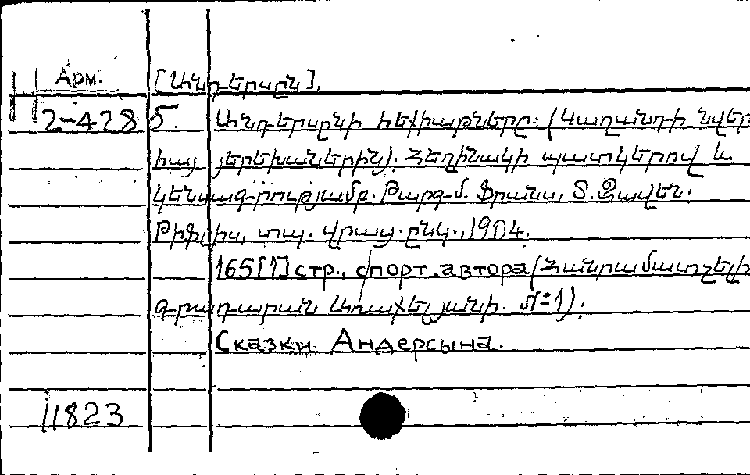 Арм. [Անդերսըն].
2-428 5. Անդերսընի հեքիաթները. (Կաղանդի նվեր
հայ յերեխաներին). Հեղինակի պատկերով և
կենսագրությամբ. Թարգմ. Ֆրանս, Տ. Զավեն.
Թիֆլիս, տպ. վրաց. ընկ., 1904.
165[1] стр., с порт. автора (Հանրամատչելի
գրադարան Առաքելյանի. №1).
Сказки Андерсына.
11823